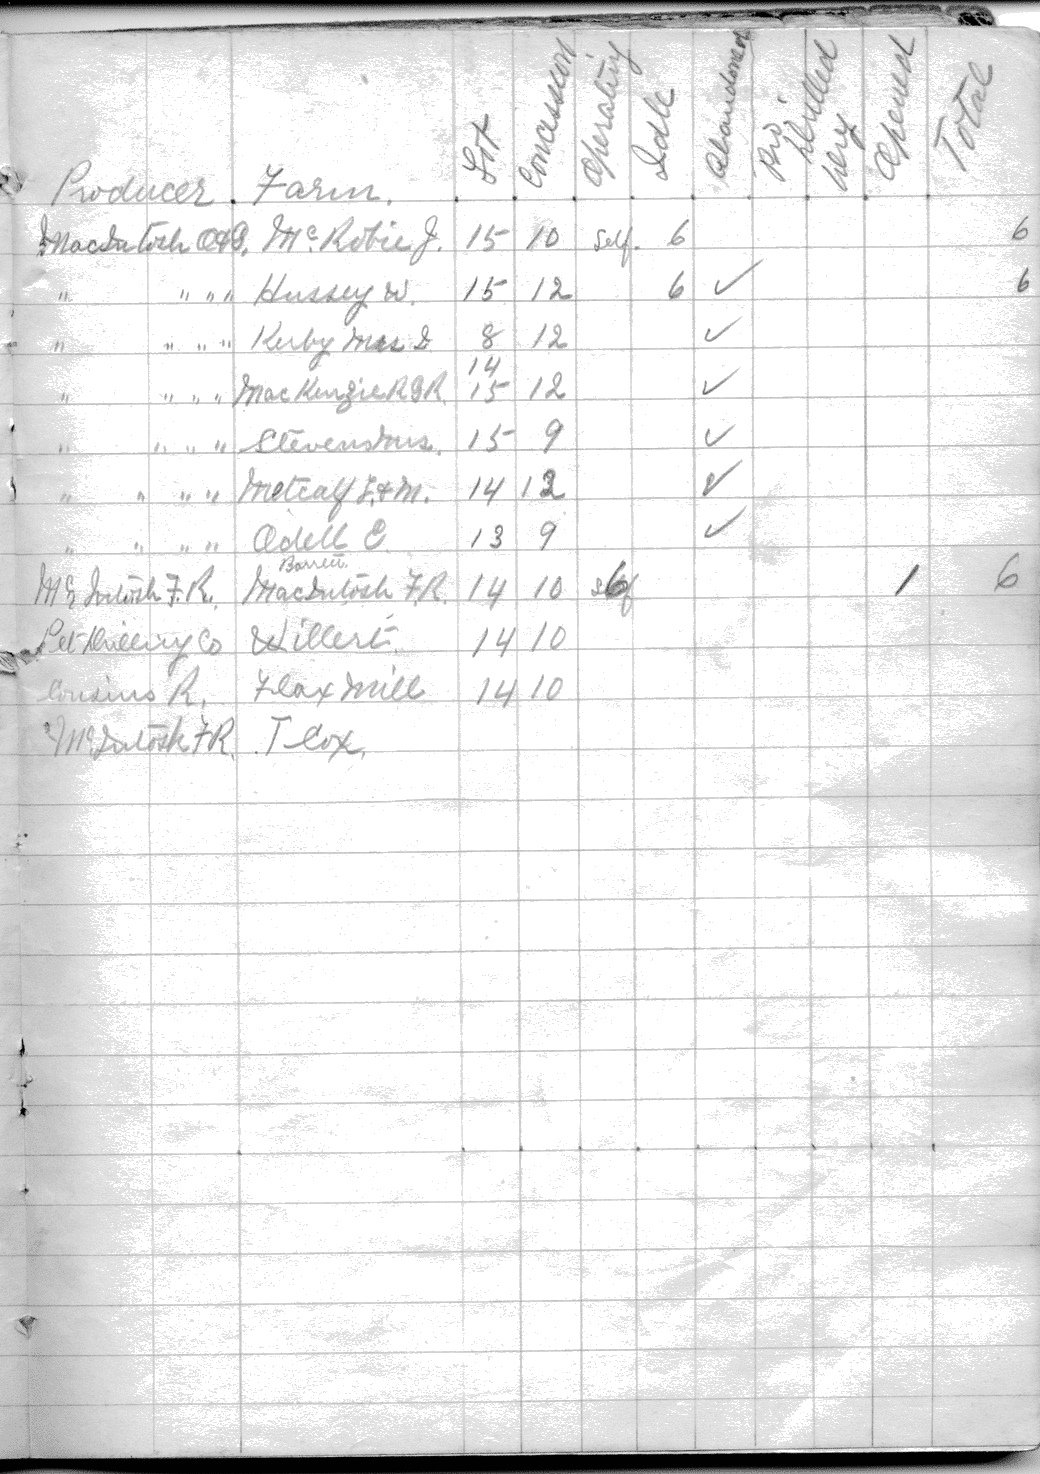 Producer. Farm. Lot Concession Operating Idle Abandoned No. Drilled Very Opened Total
MacIntosh O&G. McRobie J. 15 10 Self. 6 6
" " " " Hussey W. 15 12 6 ✓ 6
" " " " Kerby Mrs D 8 12 ✓
14
" " " " MacKenzie R & R. 15 12 ✓
" " " " Stevens Mrs. 15 9 ✓
" " " " Metcalf F. & M. 14 12 ✓
" " " " Odell E 13 9 ✓
Barrett.
McIntosh F. R. MacIntosh F.R. 14 10 6 1 6
Pet Drilling Co Willert. 14 10
Cousins R. Flax Mill 14 10
"McIntosh F R. T Cox.